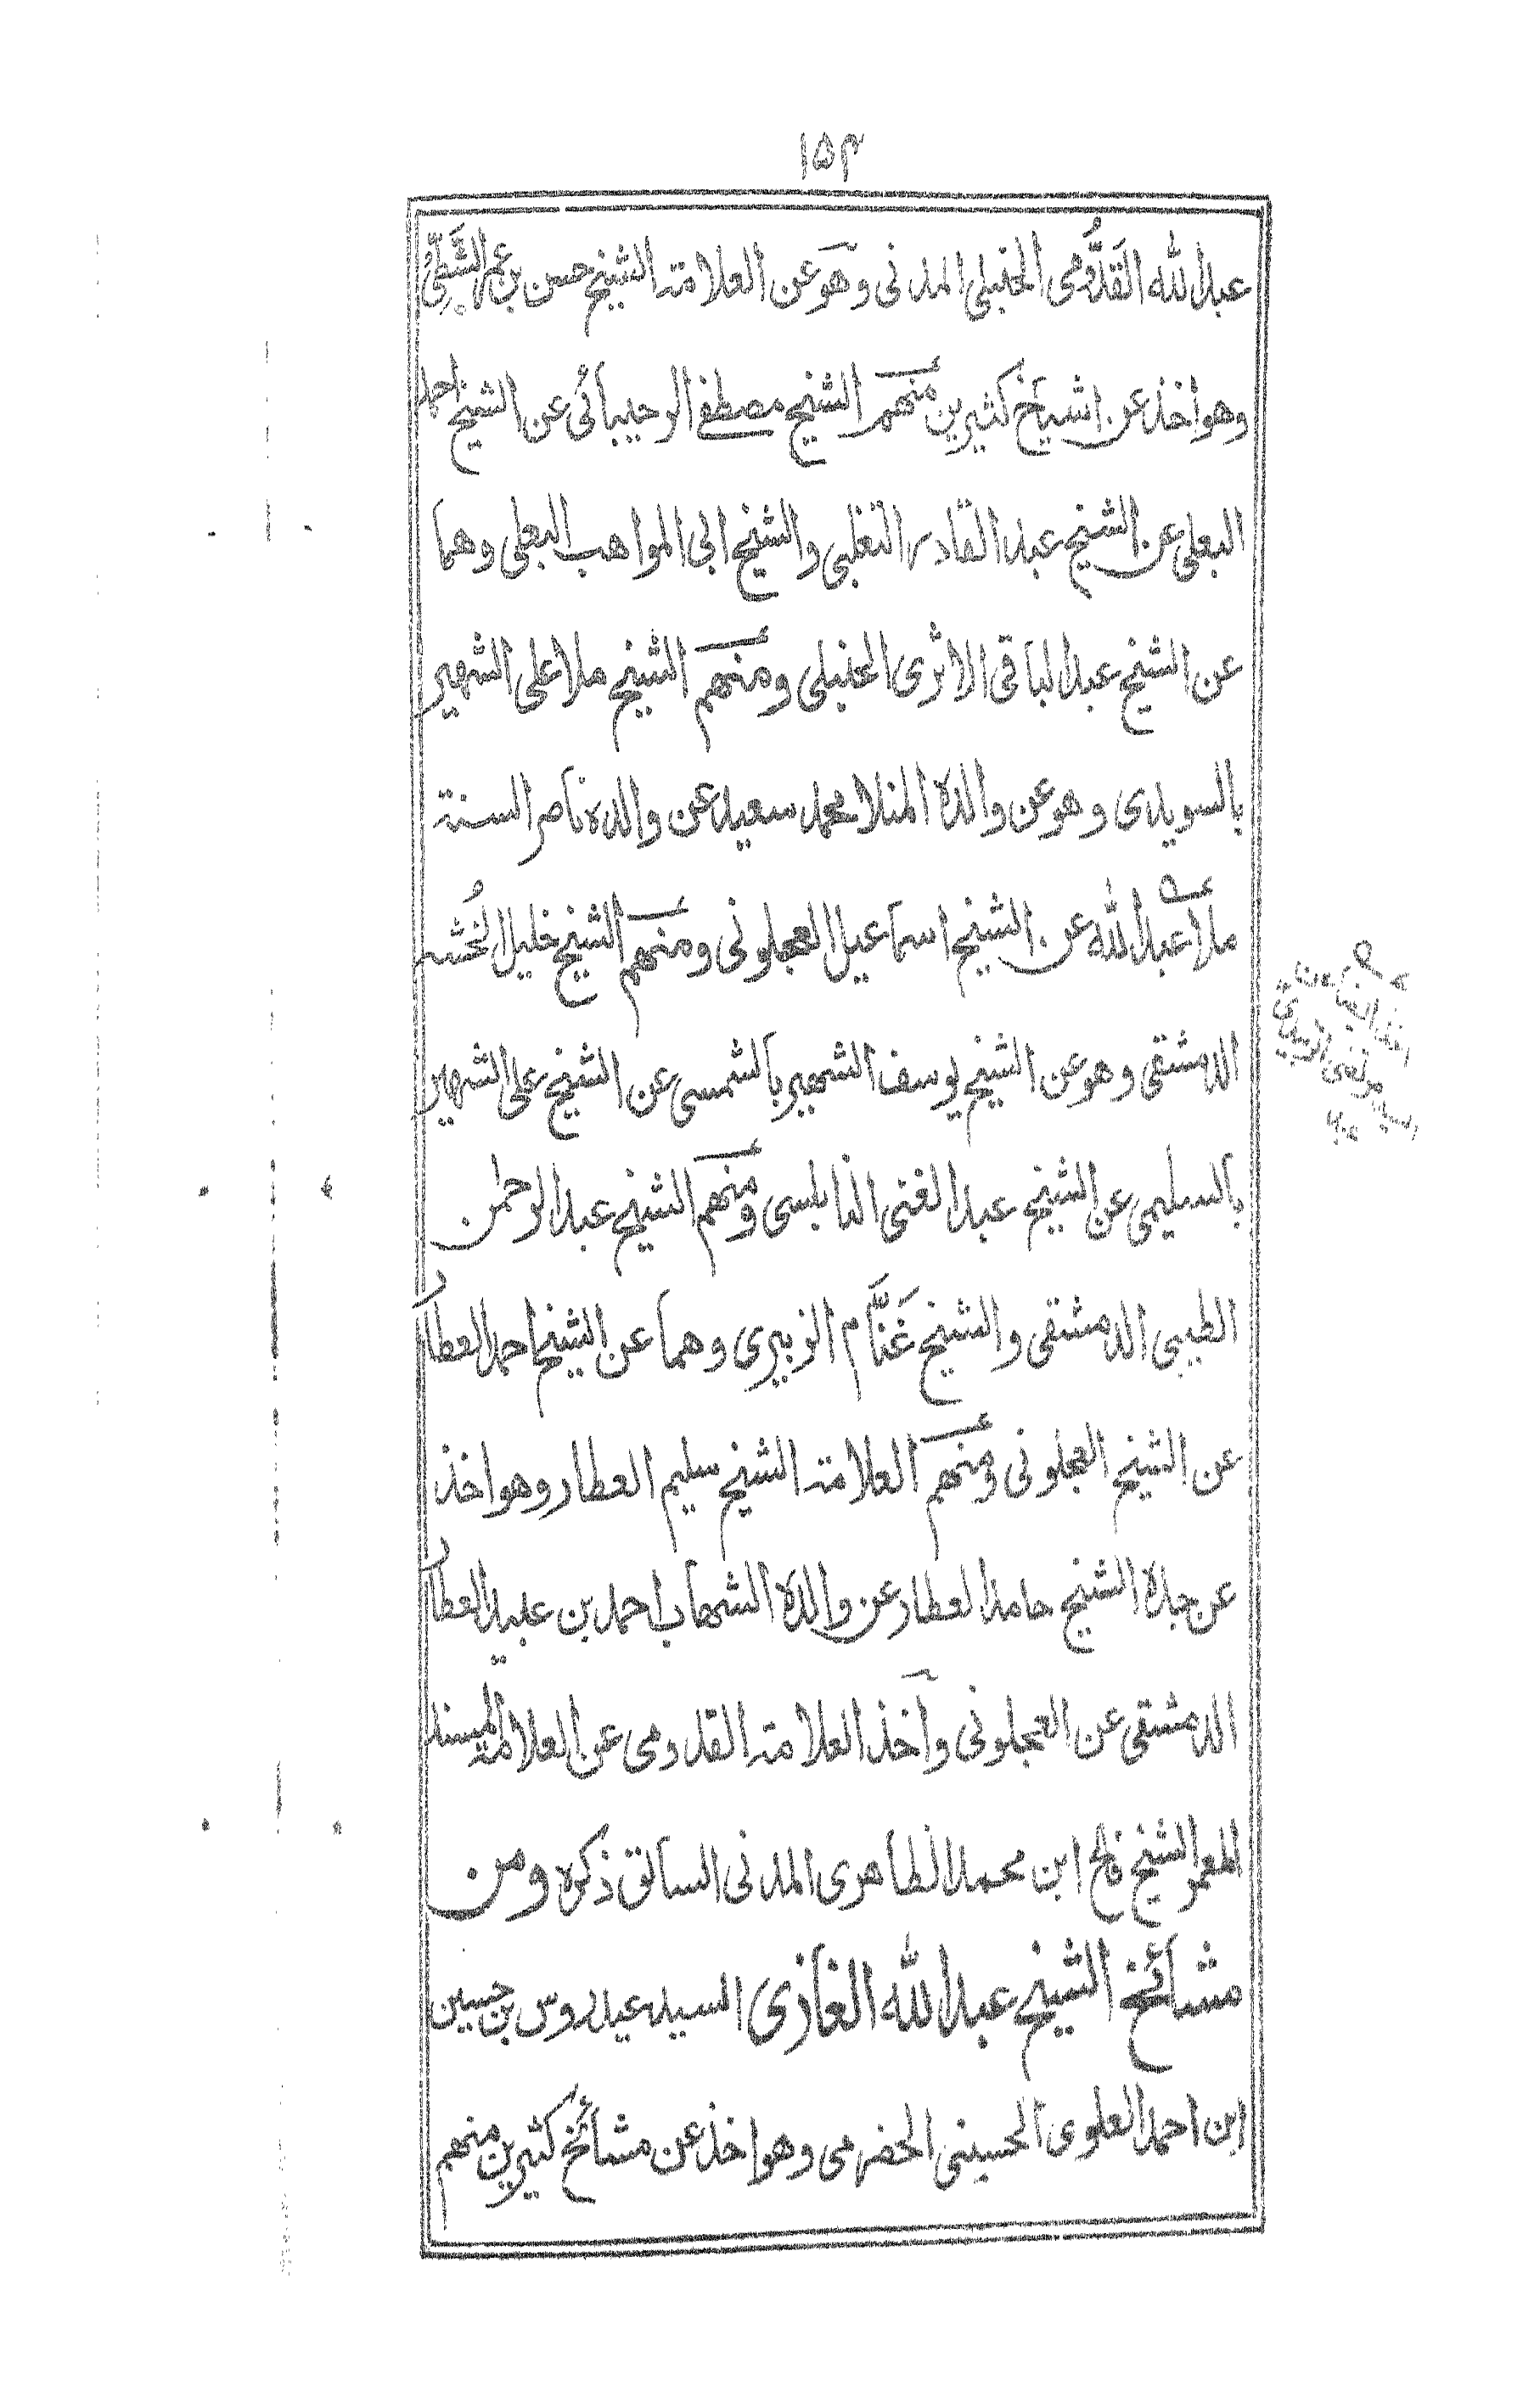 ١٥٣
عبد الله القَدُّومى الحنبلى المدنى وهو عن العلامة الشيخ حسن بن عمر الشَّطِّى
وهو اخذ عن اشياخ كثيرين منهم الشيخ مصطفى الرحيبانى عن الشيخ احمد
البعلى عن الشيخ عبد القادر التغلبى والشيخ ابى المواهب البعلى وهما
عن الشيخ عبد الباقى الاثرى الحنبلى ومنهم الشيخ ملا على الشهير
بالسويدى وهو عن والده المنلا محمد سعيد عن والده ناصر السنة
ملا عبد الله عن الشيخ اسماعيل العجلونى ومنهم الشيخ خليل الخُشه
الدمشقى وهو عن الشيخ يوسف الشهير بالشمسى عن الشيخ على الشهير
بالسليمى عن الشيخ عبد الغنى النابلسى ومنهم الشيخ عبد الرحمن
الطيبى الدمشقى والشيخ غَنَّام الزبيرى وهما عن الشيخ احمد العطار
عن الشيخ العجلونى ومنهم العلامة الشيخ سليم العطار وهو اخذ
عن جده الشيخ حامد العطار عن والده الشهاب احمد بن عبيد العطار
الدمشقى عن العجلونى وآخذ العلامة القدومى عن العلامة المسند
المعمر الشيخ فالح ابن محمد الظاهرى المدنى السابق ذكره ومن
مشائخ الشيخ عبد الله الغازى السيد عيدروس بن حسين
ابن احمد العلوى الحسينى الحضرمى وهو اخذ عن مشائخ كثيرين منهم